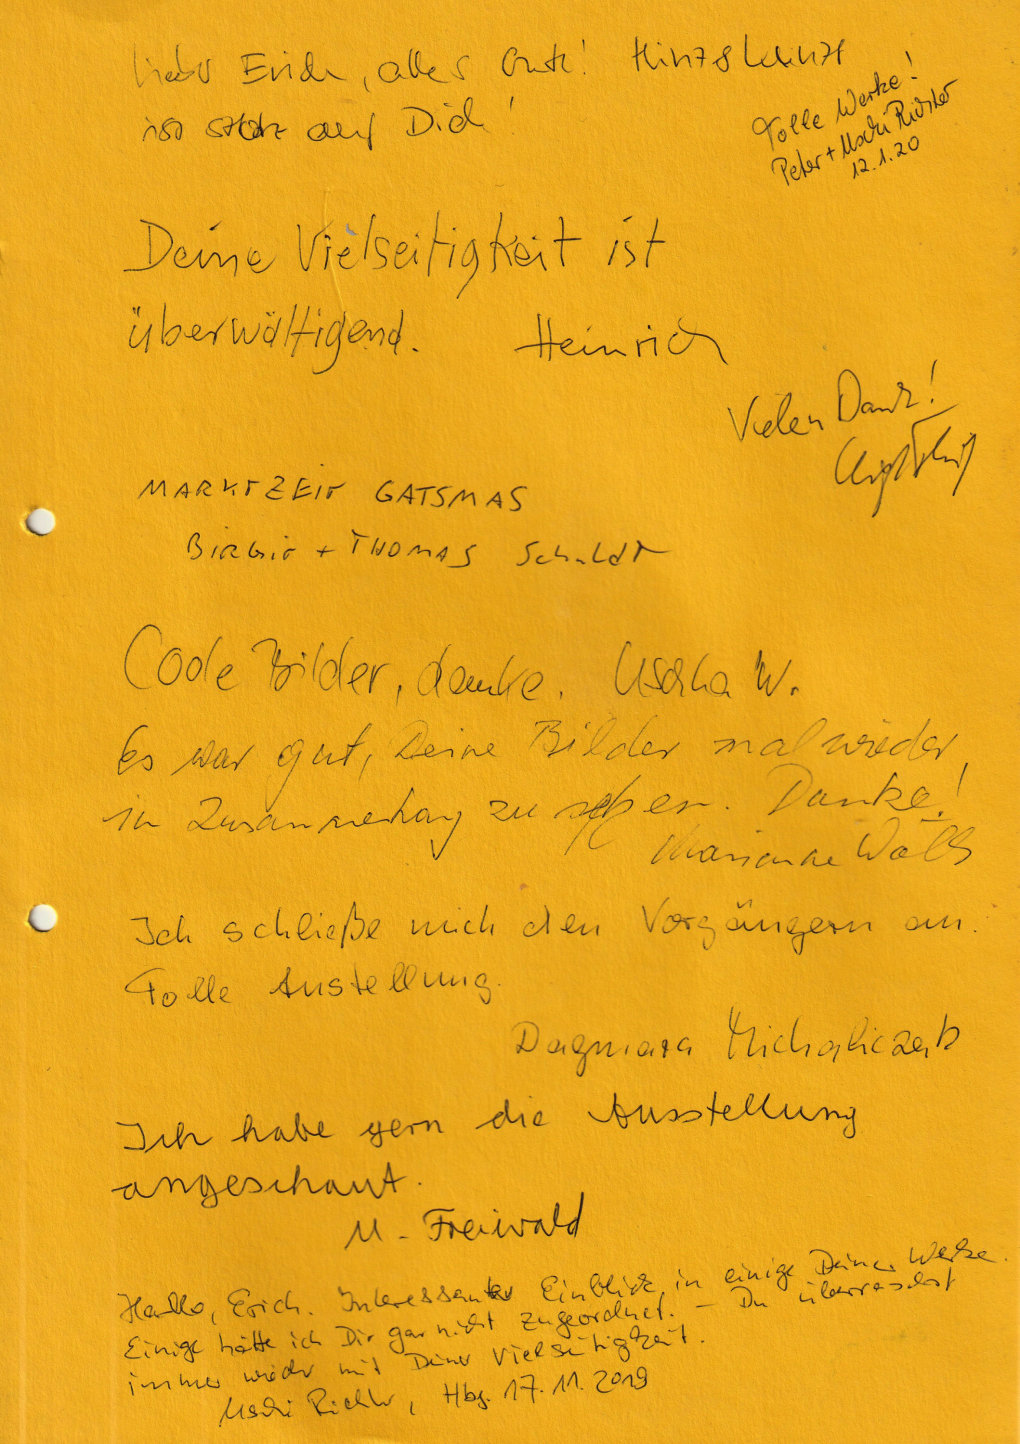 Lieber Erich, alles Gute! Hinz & Kunzt
ist stolz auf Dich!
Tolle Werke!
Peter + Uschi Richter
12.1.20
Deine Vielseitigkeit ist
überwältigend. Heinrich
Vielen Dank!
MARKTZEIT GATSMAS
BIRGIT + THOMAS Schuldt
Coole Bilder, danke. Uschka W.
Es war gut, Deine Bilder mal wieder,
in Zusammenhang zu sehen. Danke!
Marianne
Ich schließe mich den Vorgängern an.
Tolle Austellung.
Dagmara Michaliczak
Ich habe gern die Ausstellung
angeschaut.
M. Freiwald
Hallo, Erich. Interessanter Einblick in einige Deiner Werke.
Einige hätte ich Dir gar nicht zugeordnet. – Du überraschst
immer wieder mit Deiner Vielseitigkeit.
Uschi Richter, Hbg. 17.11.2019